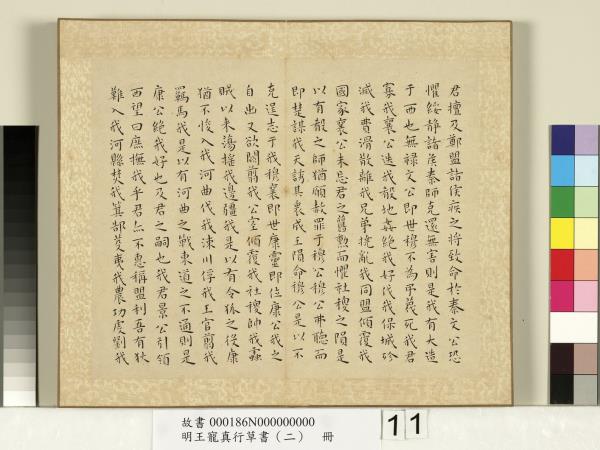 君擅及鄭盟諸侯疾之將致命於秦文公恐
懼綏静諸侯秦師克還無害則是我有大造
于西也無祿文公即世穆不為弔蔑死我君
寡我襄公迭我殽地姦絕我好伐我保城殄
滅我費滑散離我兄弟撓亂我同盟傾覆我
國家襄公未忘君之舊勳而懼社稷之隕是
以有殽之師猶願赦罪于穆公穆公弗聽而
即楚謀我天誘其衷成王隕命穆公是以不
克逞志于我穆襄即世康靈即位康公我之
自出又欲闕翦我公室傾覆我社稷帥我蟊
賊以來蕩搖我邊疆我是以有令狐之役康
猶不悛入我河曲伐我涑川俘我王官翦我
羈馬我是以有河曲之戰東道之不通則是
康公絕我好也及君之嗣也我君景公引領
西望曰庶撫我乎君亦不惠稱盟利吾有狄
難入我河縣焚我箕郜芟夷我農功虔劉我
故書 000186N000000000
明王寵真行草書(二) 冊
11